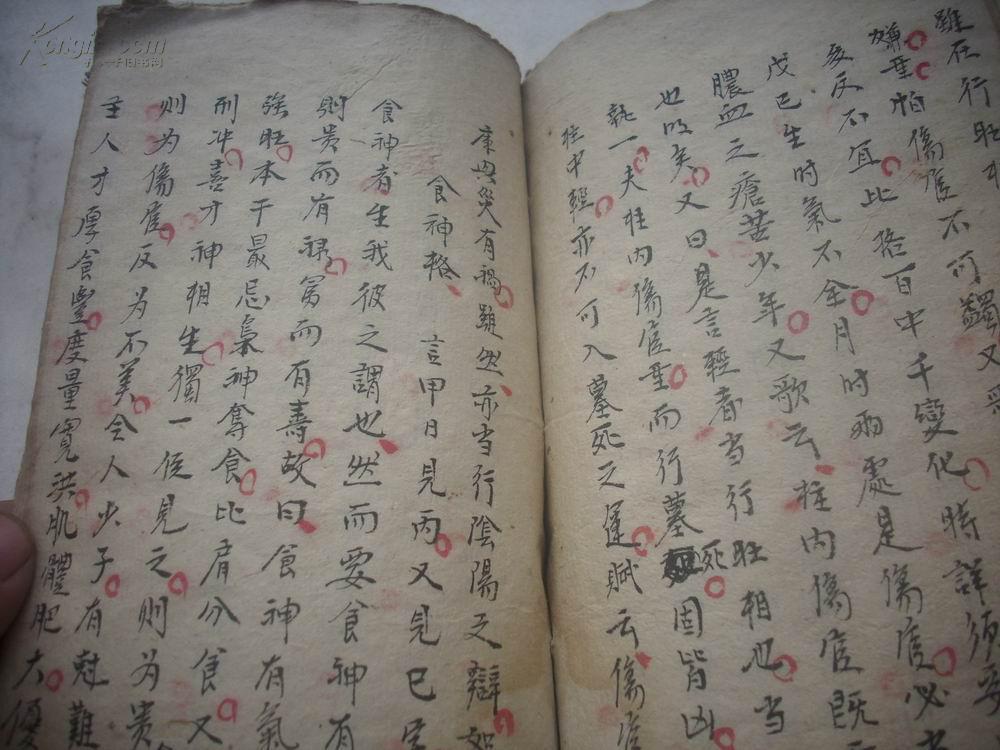 雖在行旺
嫌重怕傷官不可蠲又
亥反不宜比格百中千變化時詳須要
戊巳生時氣不全月时两處是傷官必
膿血之瘡苦少年又歌云柱内傷官既
也明矣又曰是言輕者当行旺相也当
执一夫柱内傷官重而行墓死固皆凶
柱中輕亦不可入墓死之運賦云傷官
康毋災有禍雖然亦当行陰陽之辯
食神格 言甲日見丙又見巳
食神者生我彼之謂也然而要食神有
則贵而有禄富而有壽故曰食神有氣
強旺本干最忌梟神奪食比肩分食又
刑冲喜才神相生獨一位見之則为贵
则为傷官反为不美令人少子有尅難
主人才厚食豐度量寛洪肌體肥大優